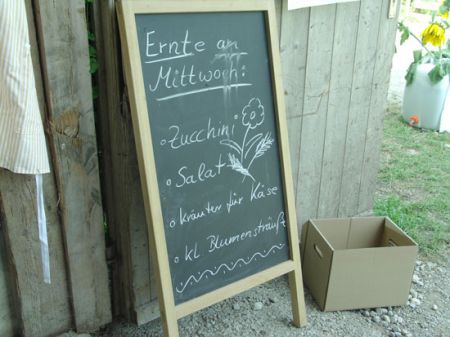 Ernte am
Mittwoch:
◦ Zucchini
◦ Salat
◦ Kräuter für Käse
◦ kl Blumensträuße